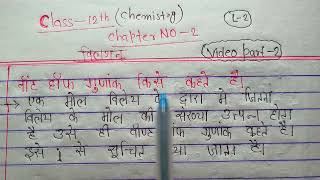 Class-12th (Chemistry)
L-2
chapter NO-2
विलयन
Video part-2
वांट हॉफ गुणांक किसे कहते है।
→ एक मोल विलेय के द्वारा में जितना
विलेय के मोल की संख्या उत्पन्न होता
है उसे ही वाण्ट हॉफ गुणांक कहते है।
इसे i से सूचित किया जाता है।